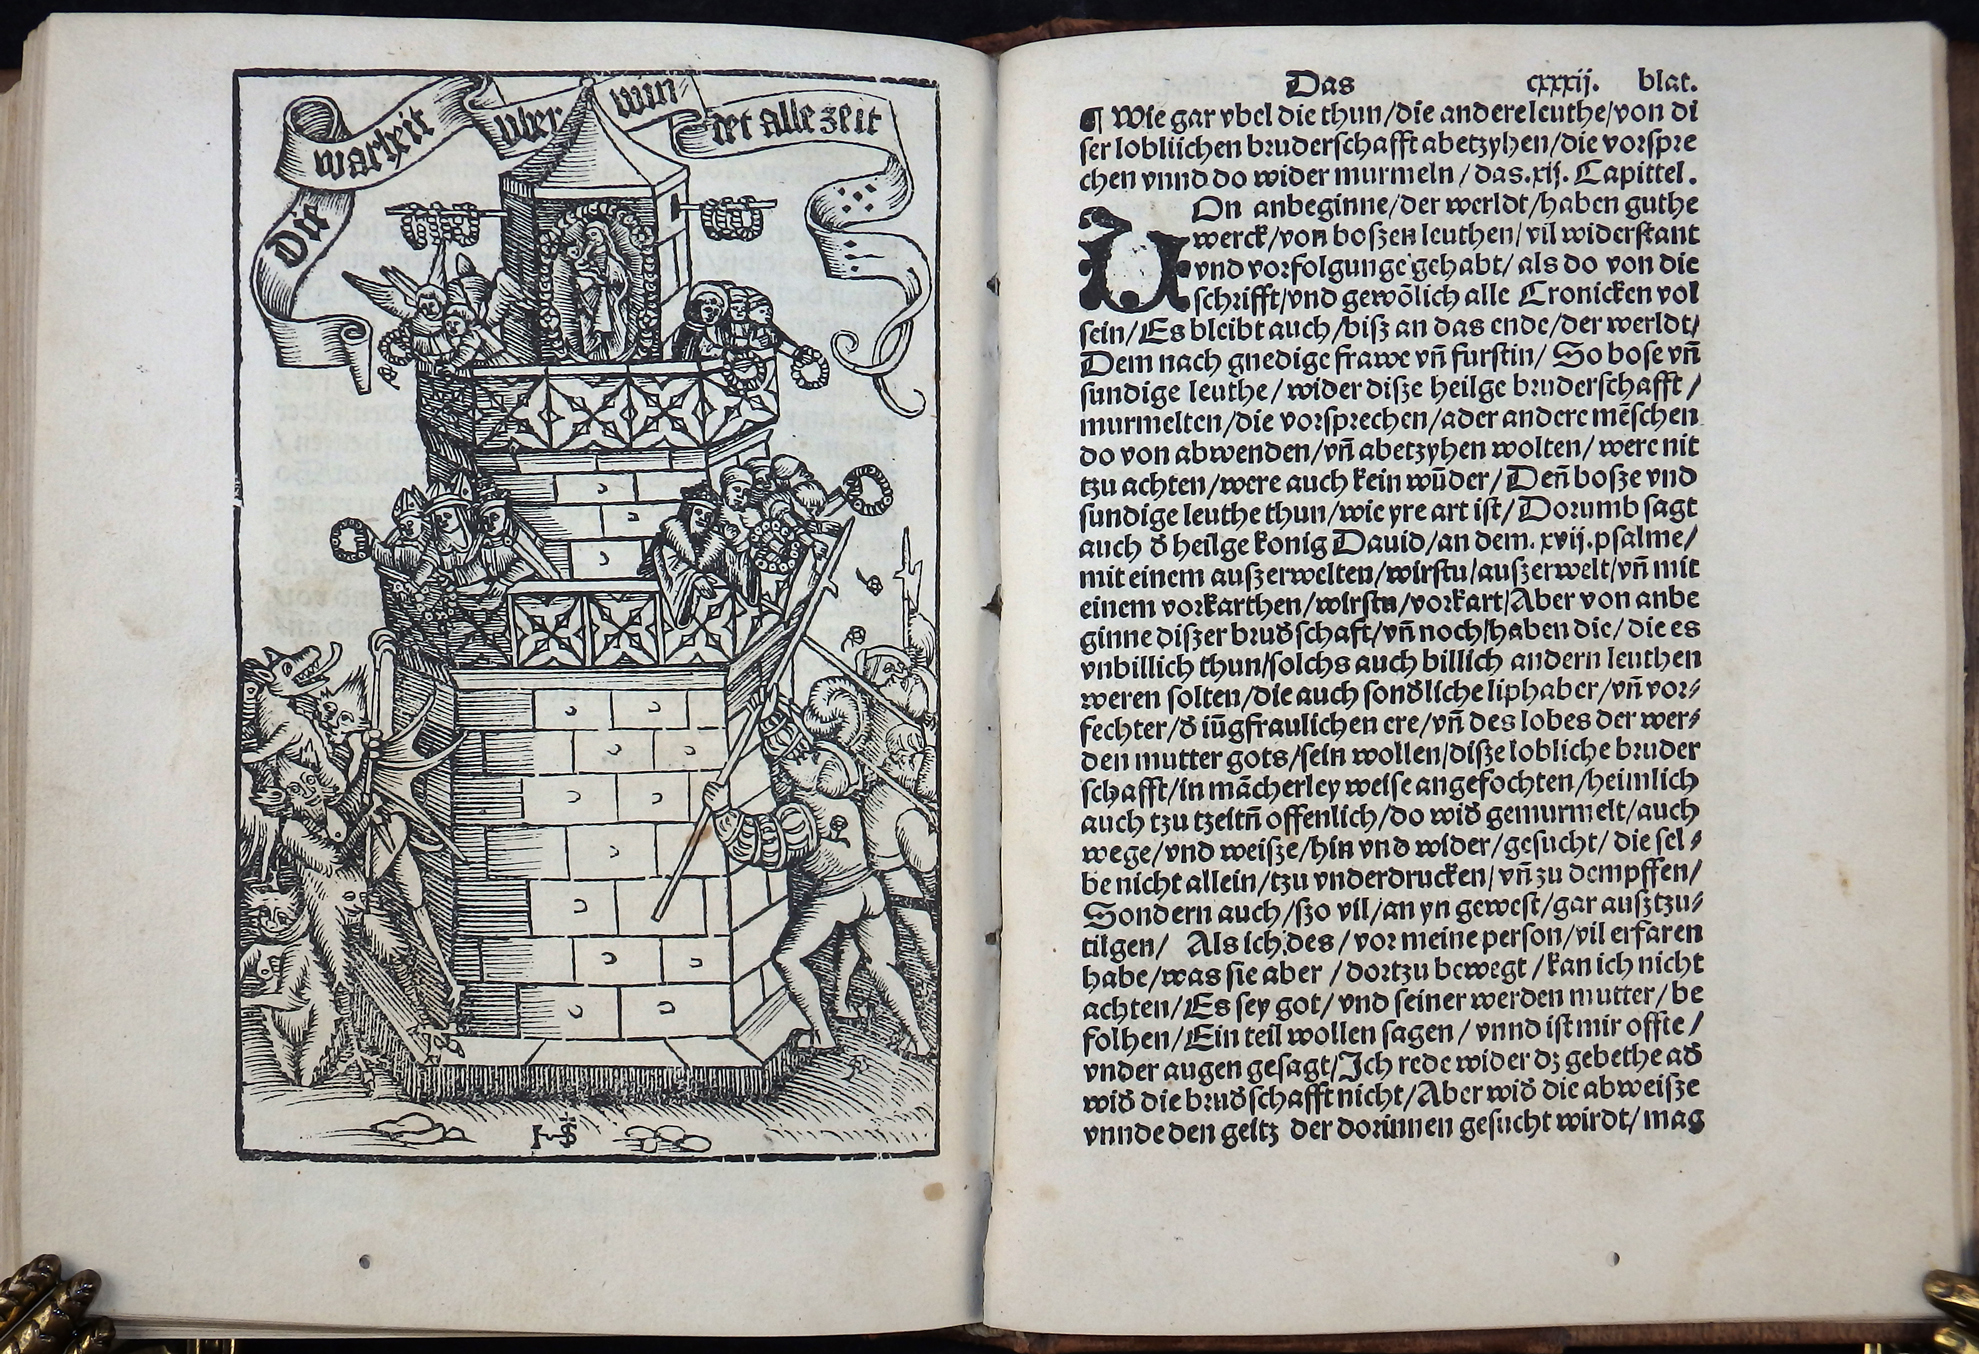 Die warheit vber win-
det alle zeit
HS
Das cxxxij. blat.
¶ Wie gar vbel die thun/die andere leuthe/von di
ser lobliichen bruderschafft abetzyhen/die vorspre
chen vnnd do wider murmeln/das.xij. Capittel.
UOn anbeginne/der werldt/haben guthe
werck/von boszen leuthen/vil widerstant
vnd vorfolgunge gehabt/als do von die
schrifft/vnd gewõlich alle Cronicken vol
sein/Es bleibt auch/bisz an das ende/der werldt/
Dem nach gnedige frawe vñ furstin/So bose vñ
sundige leuthe/wider disze heilge bruderschafft/
murmelten/die vorsprechen/ader andere mẽschen
do von abwenden/vñ abetzyhen wolten/were nit
tzu achten/were auch kein wũder/Deñ bosze vnd
sundige leuthe thun/wie yre art ist/Dorumb sagt
auch d̉ heilge konig Dauid/an dem.xvij.psalme/
mit einem auszerwelten/wirstu/auszerwelt/vñ mit
einem vorkarthen/wirstu/vorkart/Aber von anbe
ginne diszer brud̉schaft/vñ noch/haben die/die es
vnbillich thun/solchs auch billich andern leuthen
weren solten/die auch sond̉liche liphaber/vñ vor-
fechter/d̉ iũgfraulichen ere/vñ des lobes der wer-
den mutter gots/sein wollen/disze lobliche bruder
schafft/in mãcherley weise angefochten/heimlich
auch tzu tzeitñ offenlich/do wid̉ gemurmelt/auch
wege/vnd weisze/hin vnd wider/gesucht/die sel-
be nicht allein/tzu vnderdrucken/vñ zu dempffen/
Sondern auch/szo vil/an yn gewest/gar ausztzu-
tilgen/ Als ich des/vor meine person/vil erfaren
habe/was sie aber/dortzu bewegt/kan ich nicht
achten/Es sey got/vnd seiner werden mutter/be
folhen/Ein teil wollen sagen/vnnd ist mir offte/
vnder augen gesagt/Ich rede wider dz gebethe ad̉
wid̉ die brud̉schafft nicht/Aber wid̉ die abweisze
vnnde den geitz der dorinnen gesucht wirdt/mag